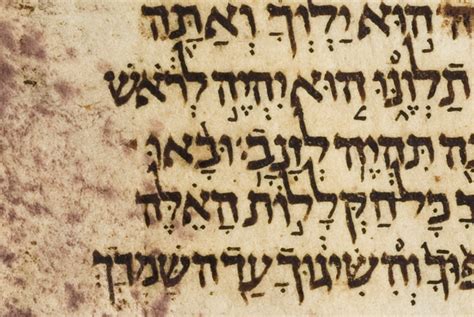 הוּא יַלְוְךָ וְאַתָּה
תַלְוֶנּוּ הוּא יִהְיֶה לְרֹאשׁ
תִּהְיֶה לְזָנָב׃ וּבָאוּ
כָּל הַקְּלָלוֹת הָאֵלֶּה
וְהִשִּׂיגוּךָ עַד הִשָּׁמְדָךְ